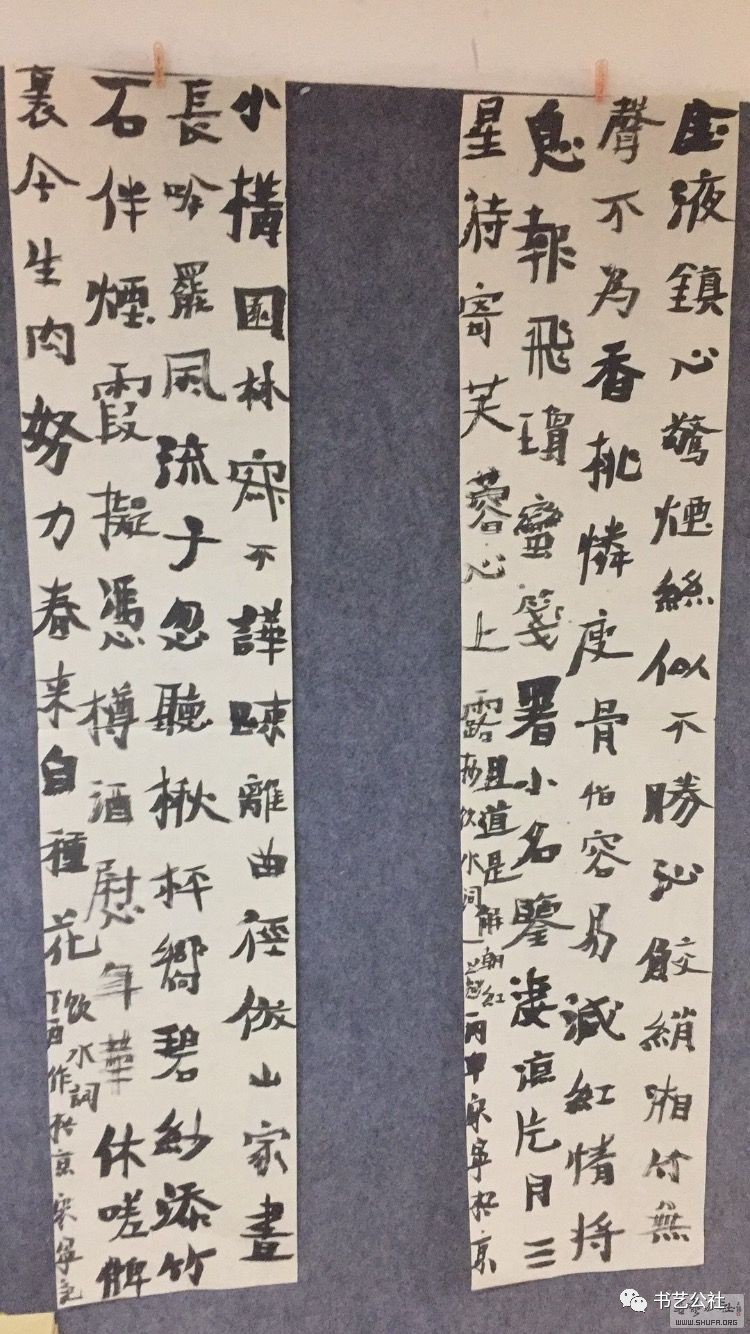 玉液鎮心驚煙絲似不勝沁鮫綃湘竹無
聲不為香桃憐瘦骨怕容易減紅情將
息報飛瓊蠻箋署小名鑒淒涼片月三
星待寄芙蓉心上露
且道是解朝
抄飲水詞一
丙申宋寧於京
小構園林寂不譁踈離曲徑倣山家晝
長吟罷風流子忽聽楸枰響碧紗添竹
石伴煙霞擬憑樽酒慰年華休嗟髀
裏今生肉努力春来自種花
飲水詞
丁酉作於京宋寧記
书艺公社
WWW.SHUFA.ORG